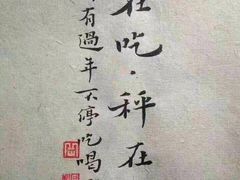 在吃·秤在
有過年不停吃喝